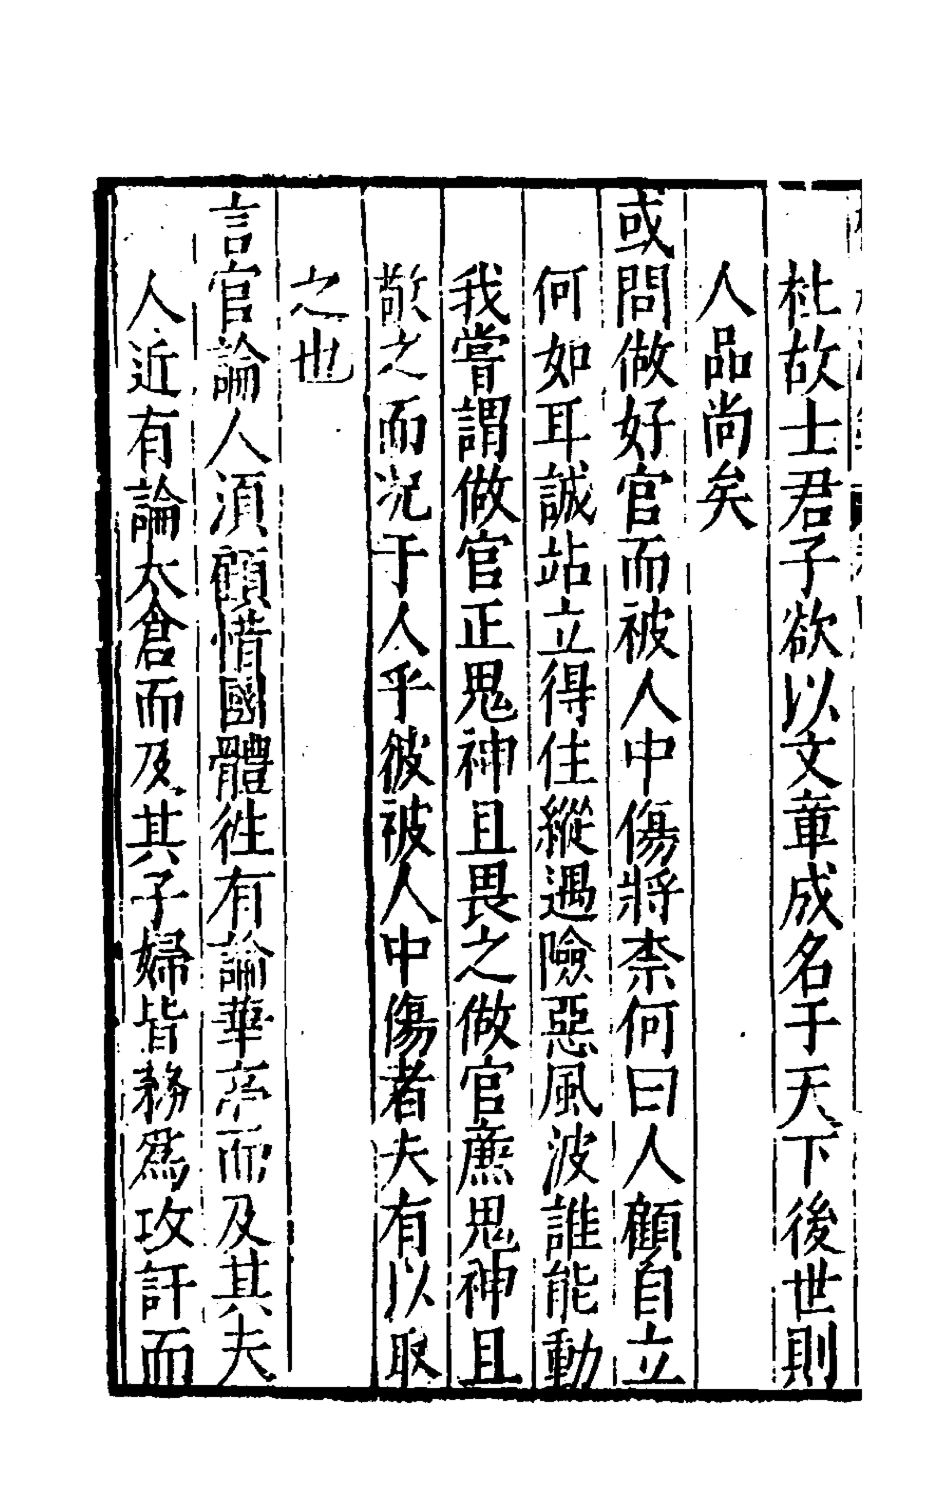 杜故士君子欲以文章成名于天下後世則
人品尚矣
或問做好官而被人中傷將柰何曰人顧自立
何如耳誠站立得住縱遇險惡風波誰能動
我嘗謂做官正鬼神且畏之做官廉鬼神且
敬之而况于人乎彼被人中傷者夫有以取
之也
言官論人須顧惜國體徃有論華亭而及其夫
人近有論太倉而及其子婦皆務爲攻訐而